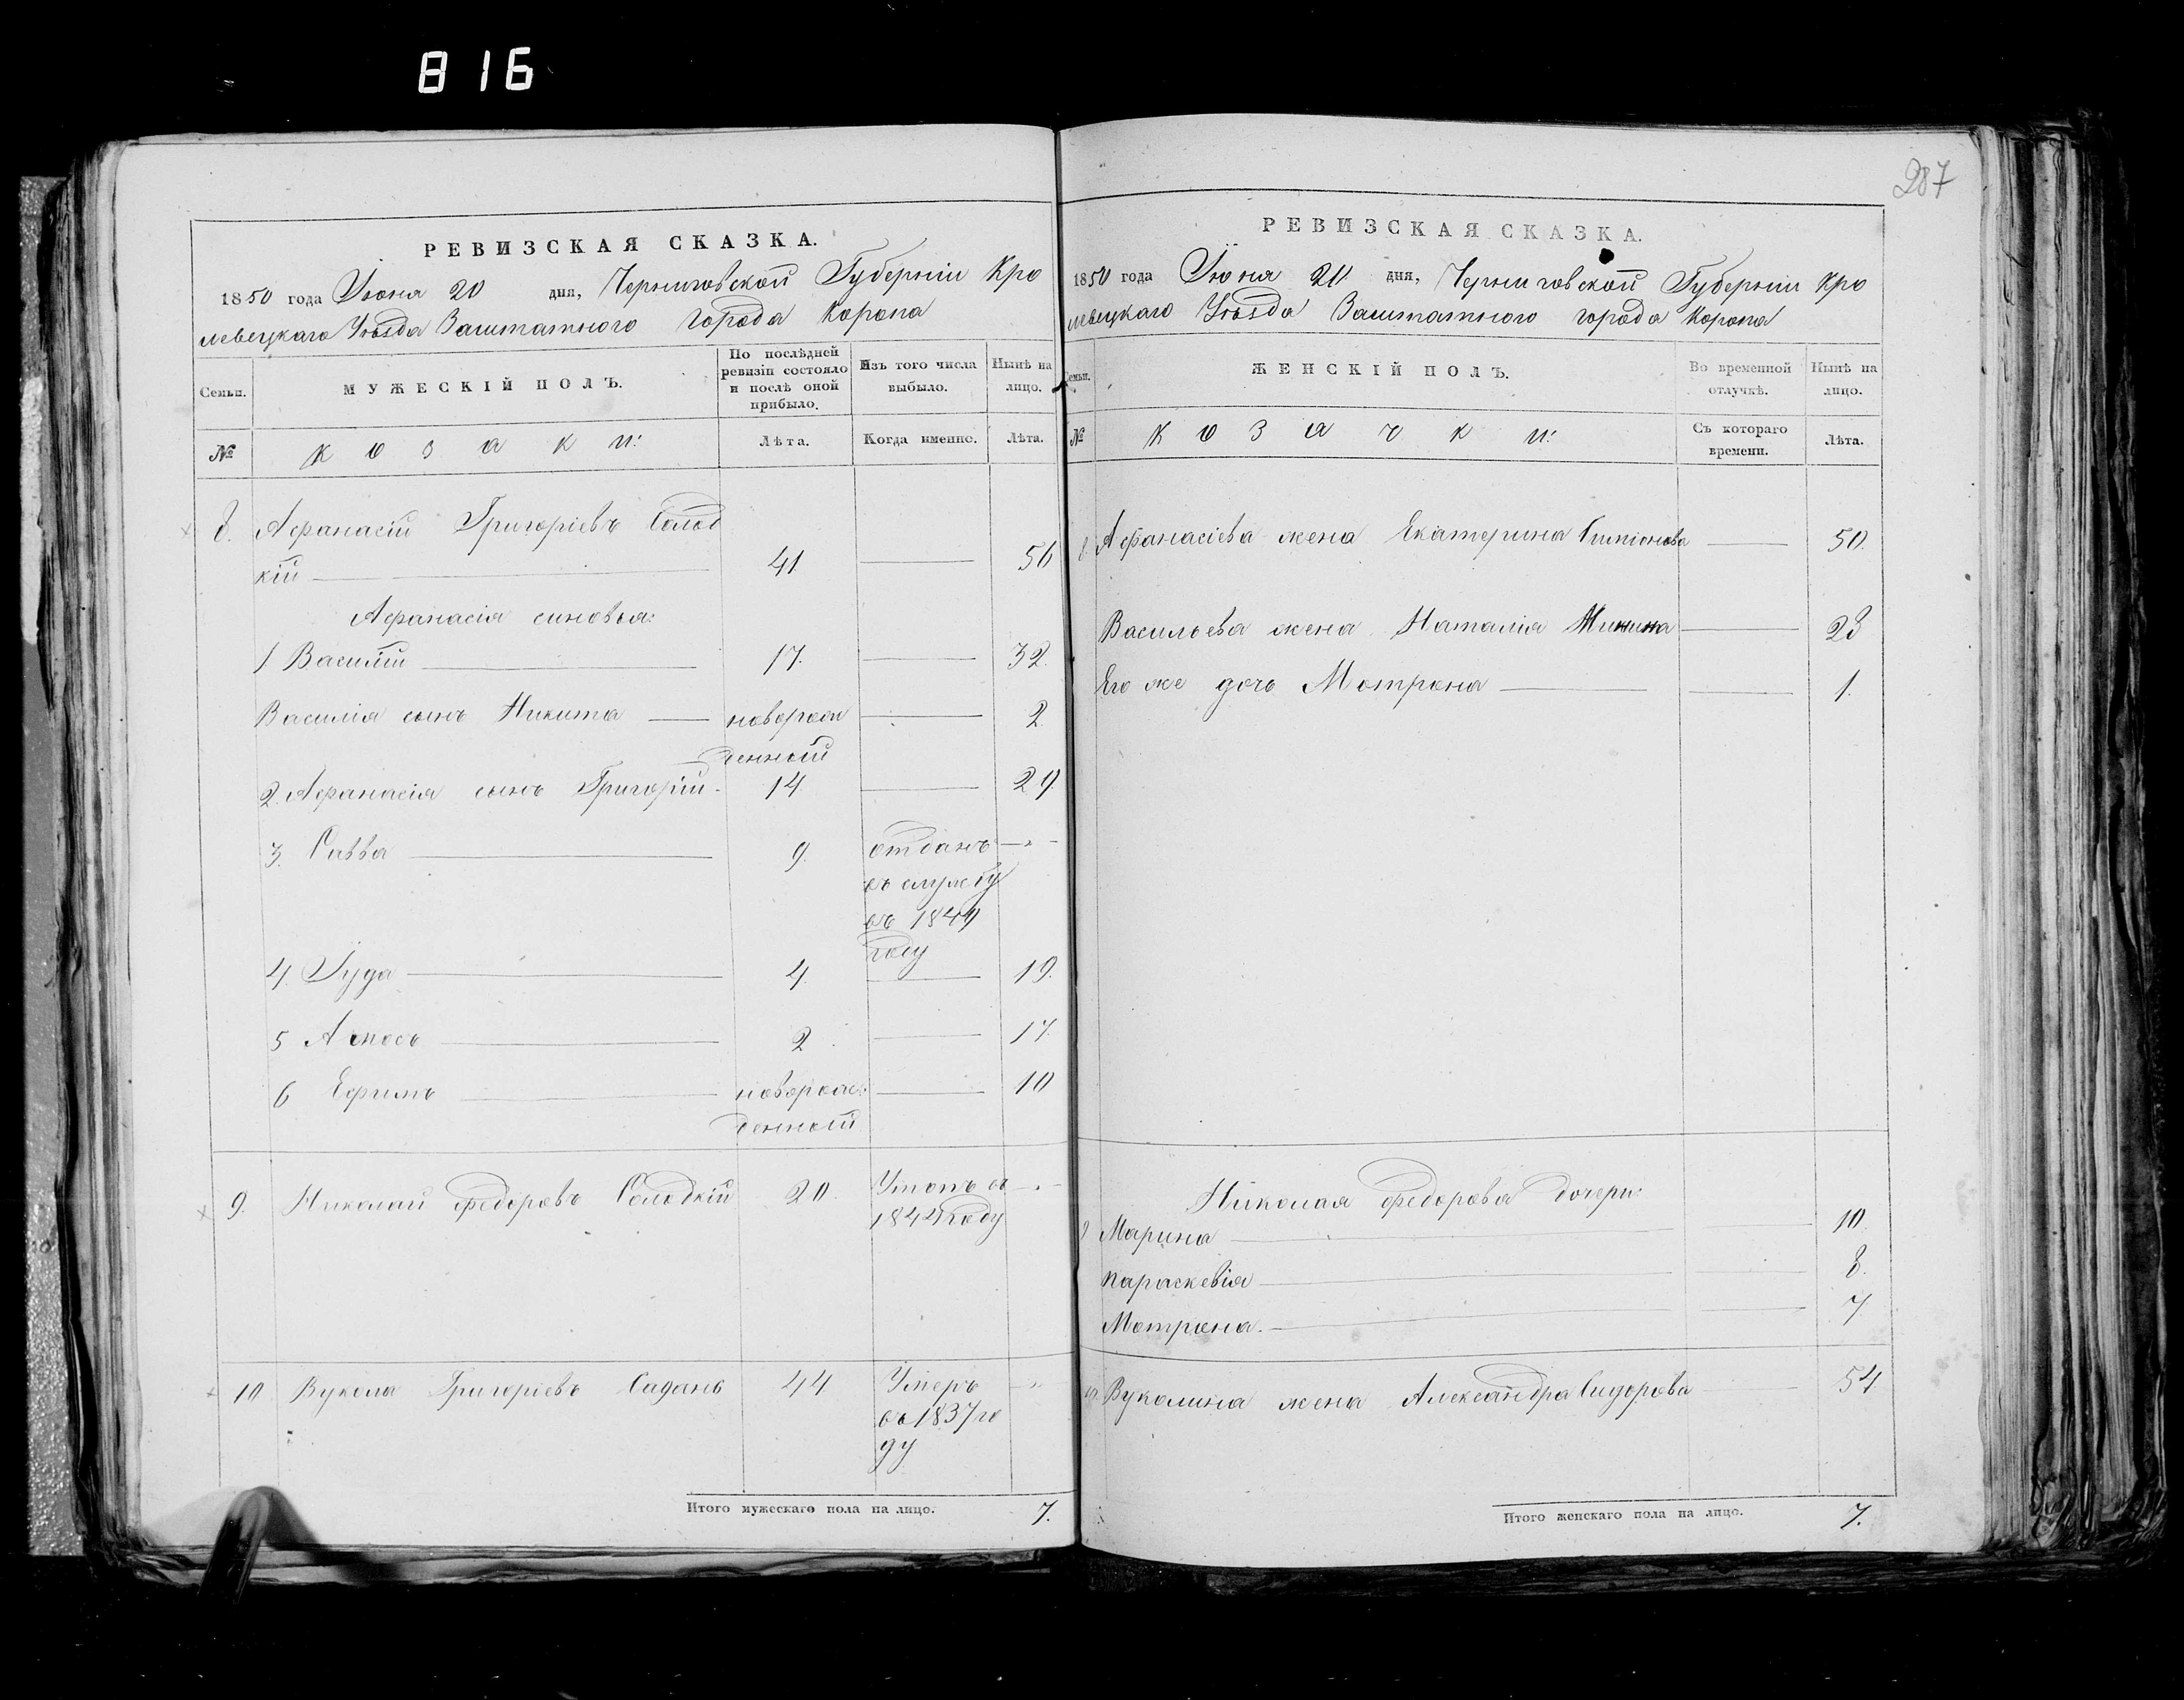 816
287
РЕВИЗСКАЯ СКАЗКА.
1850 года Июня 20 дня, Черниговской Губерніи Кро
левецкаго Уѣзда Заштатного города Коропа
Семьи.
МУЖЕСКІЙ ПОЛЪ.
По послѣдней ревизіи состояло и послѣ оной прибыло.
Изъ того числа выбыло.
Нынѣ на лицо.
№
Козаки:
Лѣта.
Когда именно.
Лѣта.
8. Афанасій Григоріевъ Солод
кій 41. 56
Афанасія синовья:
1 Василій 17. 32.
Василія сынъ Никита новорож 2.
денный
2. Афанасія сынъ Григорій 14. 29.
3. Савва 9. отданъ
въ службу
въ 1849
году
4. Іуда 4. 19.
5 Амосъ 2. 17.
6 Ефимъ новорож: 10
денный
9. Николай Федоровъ Солодкій 20. Утопъ въ
1844 году
10 Вукола Григоріевъ Саданъ 44 Умеръ
въ 1837 го
ду
Итого мужескаго пола на лицо. 7.
РЕВИЗСКАЯ СКАЗКА.
1850 года Іюня 20 дня, Черниговской Губерніи Кро
левецкаго Уѣзда Заштатного города Коропа
Семьи.
ЖЕНСКІЙ ПОЛЪ.
Во временной отлучкѣ.
Нынѣ на лицо.
№
Козачки:
Съ котораго времени.
Лѣта.
8. Афанасіева жена Екатерина Симіонова 50.
Васильева жена Наталія Минина 28
Его же дочь Мотрона 1.
Николая Федорова дочери:
9 Марина 10.
Параскевія 8.
Мотрона. 7
10 Вуколина жена Александра Сидорова 54
Итого женскаго пола на лицо. 7.